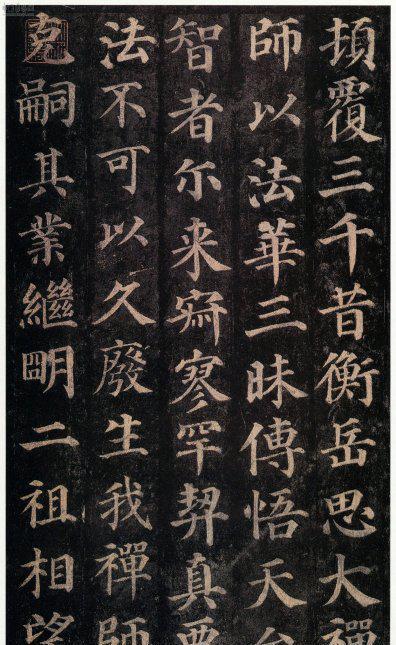 頂覆三千昔衡岳思大禪
師以法華三昧傳悟天台
智者尒来寂寥罕契真要
法不可以久廢生我禪師
克嗣其業繼明二祖相望